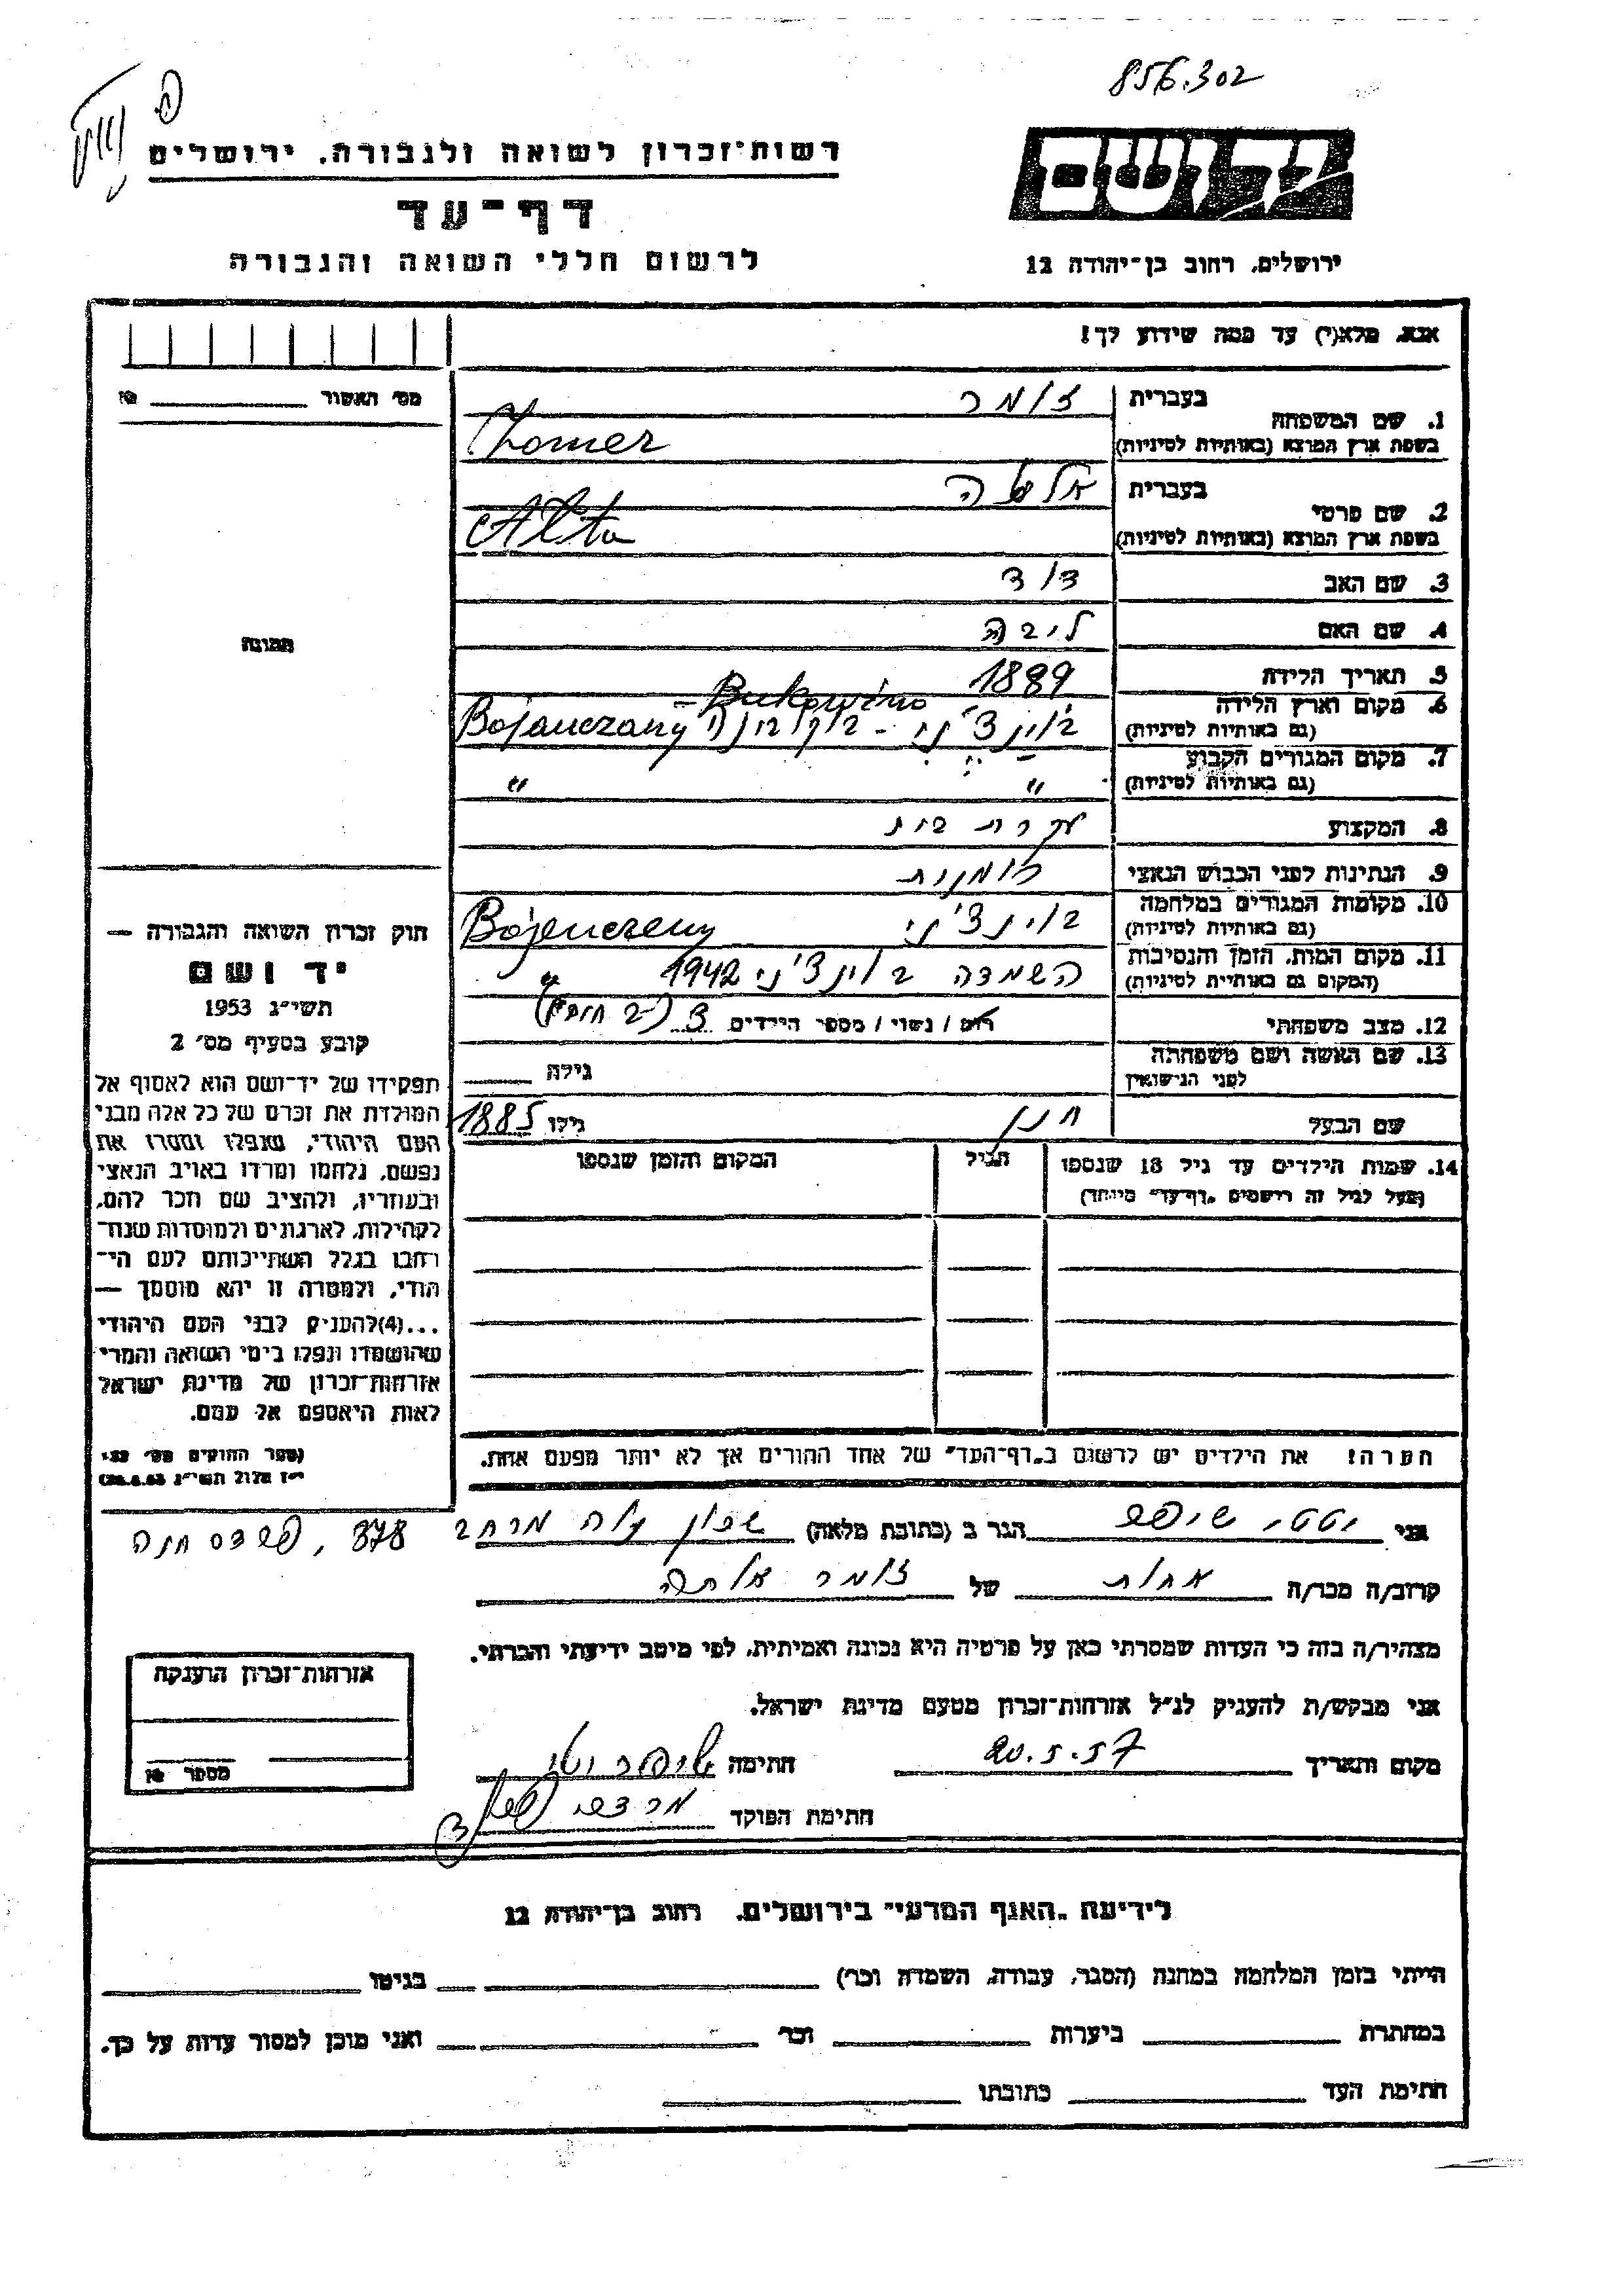 856.302
רשות־זכרון לשואה ולגבורה. ירושלים
יד ושם
דף־עד
לרשום חללי השואה והגבורה
ירושלים, רחוב בן־יהודה 12
אנא, מלא(י) עד כמה שידוע לך!
מס׳ האשור
1. שם המשפחה
בעברית זומר
בשפת ארץ המוצא (באותיות לטיניות) Zomer
2. שם פרטי
בעברית אלטה
בשפת ארץ המוצא (באותיות לטיניות) Alta
3. שם האב דוד
4. שם האם ליבה
תמונה
5. תאריך הלידה 1889
6. מקום וארץ הלידה בוינצ׳ני - בוקובינה
(גם באותיות לטיניות) Bojanczany - Bukowina
7. מקום המגורים הקבוע " "
(גם באותיות לטיניות)
8. המקצוע עקרת בית
9. הנתינות לפני הכבוש הנאצי רומנית
10. מקומות המגורים במלחמה בוינצ׳ני
(גם באותיות לטיניות) Bojenczeny
11. מקום המות, הזמן והנסיבות השמדה בוינצ׳ני 1942 "
(המקום גם באותיות לטיניות)
12. מצב משפחתי רוק / נשוי / מספר הילדים 3
13. שם האשה ושם משפחתה
לפני הנישואין
גילה
שם הבעל חנן גילו 1885
14. שמות הילדים עד גיל 18 שנספו הגיל המקום והזמן שנספו
(מעל לגיל זה רושמים „דף־עד״ מיוחד)
הערה! את הילדים יש לרשום ב„דף־העד״ של אחד ההורים אך לא יותר מפעם אחת.
חוק זכרון השואה והגבורה —
יד ושם
תשי״ג 1953
קובע בסעיף מס׳ 2
תפקידו של יד־ושם הוא לאסוף אל
המולדת את זכרם של כל אלה מבני
העם היהודי, שנפלו ומסרו את
נפשם, נלחמו ומרדו באויב הנאצי
ובעוזריו, ולהציב שם וזכר להם,
לקהילות, לארגונים ולמוסדות שנח־
רבו בגלל השתייכותם לעם הי־
הודי, ולמטרה זו יהא מוסמך —
...(4)להעניק לבני העם היהודי
שהושמדו ונפלו בימי השואה והמרי
אזרחות־זכרון של מדינת ישראל
לאות היאספם אל עמם.
(ספר החוקים מס׳ 132
י״ז אלול תשי״ג 28.8.53)
אני יטטי הגר ב (כתובת מלאה) שכון נוה מרחב 378, פרדס חנה
קרוב/ה מכר/ה אחות של זומר אלתה
מצהיר/ה בזה כי העדות שמסרתי כאן על פרטיה היא נכונה ואמיתית, לפי מיטב ידיעתי והכרתי.
אני מבקש/ת להעניק לנ״ל אזרחות־זכרון מטעם מדינת ישראל.
מקום ותאריך 20.5.57 חתימה
חתימת הפוקד
אזרחות־זכרון הוענקה
מספר
לידיעת „האגף המדעי״ בירושלים. רחוב בן־יהודה 12
הייתי בזמן המלחמה במחנה (הסגר, עבודה, השמדה וכו׳) בגיטו
במחתרת ביערות וכו׳ ואני מוכן למסור עדות על כך.
חתימת העד כתובתו